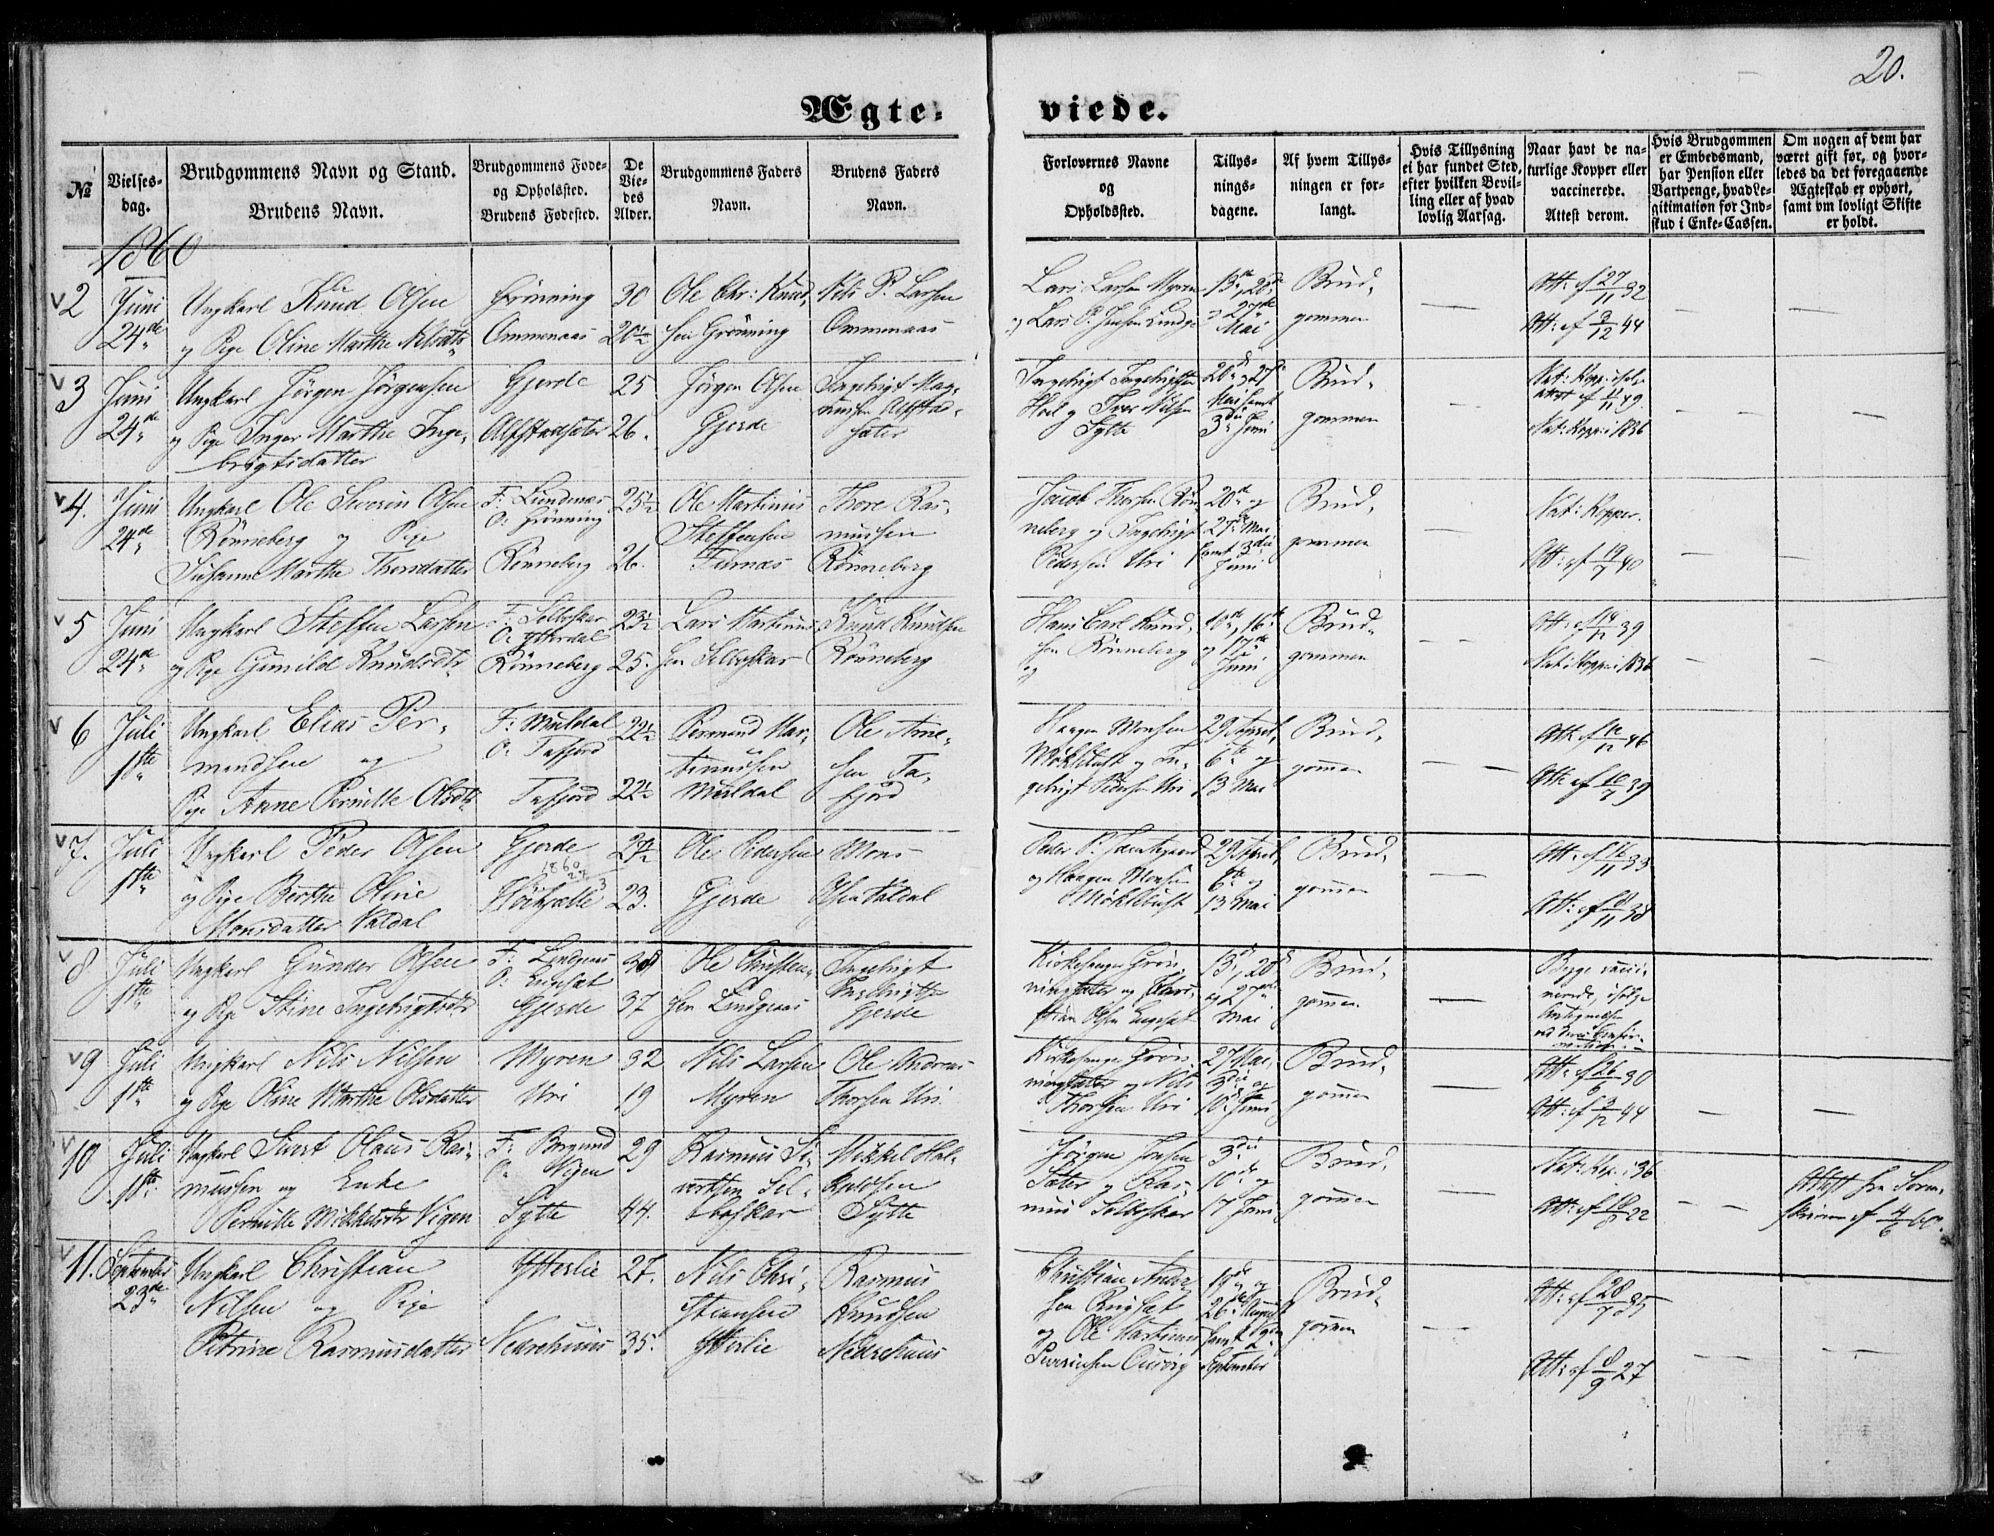 20.
Ægte-viede.
No
Vielses-
dag.
Brudgommens Navn og Stand.
Brudens Navn.
Brudgommens Føde-
og Opholdssted.
Brudens Fødested.
De
Vie-
des
Alder.
Brudgommens Faders
Navn.
Brudens Faders
Navn.
Forlovernes Navne
og
Opholdssted.
Tillys-
nings-
dagene.
Af hvem Tillys-
ningen er for-
langt.
Hvis Tillysning
ei har fundet Sted,
efter hvilken Bevil-
ling eller af hvad
lovlig Aarsag.
Naar havt de na-
turlige Kopper eller
vaccinerede.
Attest derom.
Hvis Brudgommen
er Embedsmand,
har Pension eller
Vartpenge, hvad Le-
gitimation for Ind-
skud i Enke-Cassen.
Om nogen af dem har
været gift før, og hvor-
ledes da det foregaaende
Ægteskab er ophørt,
samt om lovligt Skifte
er holdt.
1860
2 Juni 24de
Ungkarl Knud Olsen
og Pige Oline Marthe Nilsdtr
Grönning
Ommenaas
30
20½
Ole Chr: Knud-
sen Grönning
Nils P. Larsen
Ommenaas
Lars Larsen Myren
og Lars P. Jensen Linge
13de, 20de
og 27de
Mai
Brud-
gommen
Att: af 27/11 32
Att: af 9/12 44
3 Juni 24de
Ungkarl Jörgen Jörgensen
og Pige Inger Marthe Inge-
brigtsdatter
Gjerde
Alfstadsæter
25
26.
Jörgen Olsen
Gjerde
Ingebrigt Mag-
nussen Alfstad-
sæter
Ingebrigt Ingebrigtsen
Hoel og Iver Nilsen
Sylte
20de, 27de
Mai samt
3die Juni
Brud-
gommen
Nat: Kopper i 1836
4. Juni 24de
Ungkarl Ole Severin Olsen
Rönneberg og Pige
Susanne Marthe Thoresdatter
F: Lundenæs
O: Grönning
Rönneberg
25½
26.
Ole Martinus
Steffensen
Furnæs
Thore Ras-
mussen
Rönneberg
Jacob Thorsen Rön-
neberg og Ingebrigt
Pedersen Uri
20de og
27de Mai
samt 3die
Juni
Brud-
gommen
Nat: Kopper.
Att: af 19/7 40
5 Juni 24de
Ungkarl Steffen Larsen
og Pige Gunild Knudsdtr
F: Selboskar
O: Ytterdal
Rönneberg
23½
25.
Lars Martinus-
sen Selboskar
Knud Knudsen
Rönneberg
Hans Carl Knud-
sen Rönneberg
og
10de, 16de
og 17de
Juni
Brud-
gommen
Att: af 14/12 39
Nat: Kopper i 1836
6 Juli 1ste
Ungkarl Elias Per-
mundsen og
Pige Anne Pernille Olsdtr
F: Muldal
O: Tafjord
Tafjord
22½
22½
Permund Mar-
tinussen
Muldal
Ole Arne-
sen Ta-
fjord
Haagen Monsen
Møklebust og In-
gebrigt Pedersen Uri
29 April,
6te og
13 Mai
Brud-
gommen
Att: af 10/12 46
Att: af 10/7 39
7. Juli 1ste
Ungkarl Peder Olsen
og Pige Berthe Oline
Monsdatter Valdal
Gjerde
23.
Ole Pedersen
Gjerde
Mons
Olsen Valdal
og Haagen Monsen
Møklebust
29 April,
6te og
13 Mai
Brud-
gommen
Att: af 16/11 33
8 Juli 1ste
Ungkarl Gunder Olsen
og Pige Stine Ingebrigtsdtr
F: Lingenes
O: Engeset
Gjerde
38
37
Ole Christen-
sen Lingenes
Ingebrigt
Gjerde
Kirkesanger Grön-
ningsæter og Chris-
tian Olsen Engeset
13de, 20de
og 27de
Mai
Brud-
gommen
Begge vacci-
nerede, ifølge
9 Juli 1ste
Ungkarl Nils Nilsen
og Pige Oline Marthe Olsdatter
Myren
Uri
32
19
Nils Larsen
Myren
Ole Andreas
Thorsen Uri
Kirkesanger Grön-
ningsæter og Nils
Thorsen Uri
27 Mai,
3die og
10de Juni
Brud-
gommen
Att: af 26/6 30
Att: af 3/12 44
10 Juli 1ste
Ungkarl Sivert Olaus Ras-
mussen og Enke
Pernille Mikkelsdtr Vigen
F: Borgund
O: Vigen
Sylte
29
44.
Rasmus Si-
vertsen Sel-
boskar
Mikkel Hal-
Sylte
Jörgen Jonsen
Sæter og Ras-
mus Selboskar
3die
10de og
17 Juni
Brud-
gommen
Nat: Kop. i 36
Att: af 18/8 22
Attest fra Soren-
skriveren af 4/6 60.
11. September 23de
Ungkarl Christian
Nilsen og Pige
Petrine Rasmusdatter
Ytterlie
Nedrehuus
27.
35.
Nils Chri-
stiansen
Ytterlie
Rasmus
Knudsen
Nedrehuus
Christian Ander-
sen Ringset
og Ole Martinus
19de og
26de August
samt 2den
September
Brud-
gommen
Att: af 28/7 35
Att: af 8/9 27